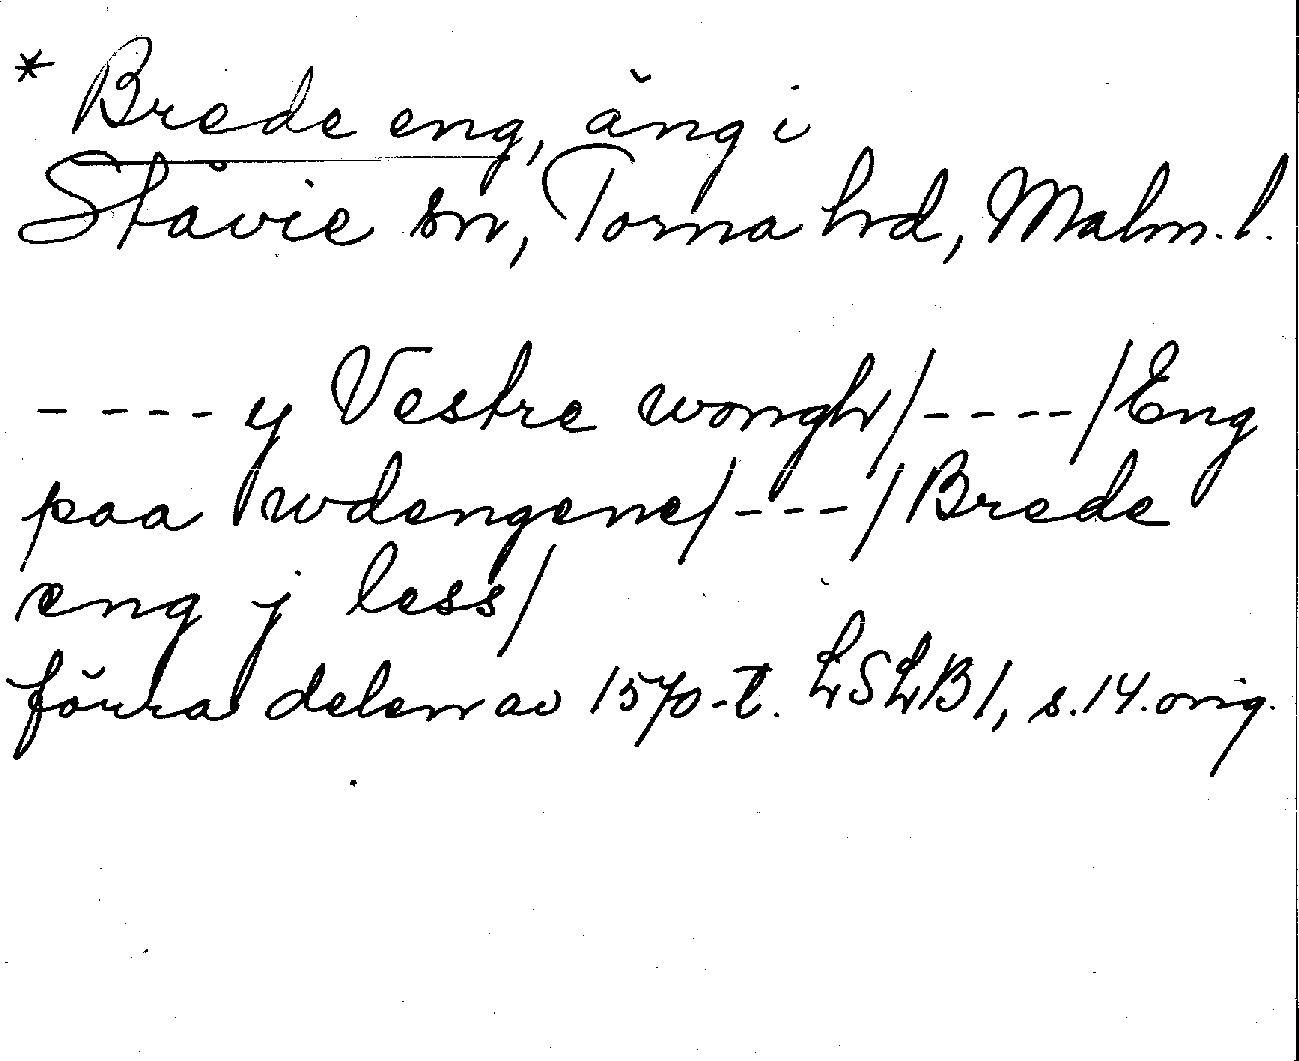 * Brede eng, äng i
Stävie sn, Torna hrd, Malm. l.
---- y Vestre wongh/----/Eng
paa wdengene/---/Brede
eng j less/
förra delen av 1570-t. LSLB1, s.14. orig.